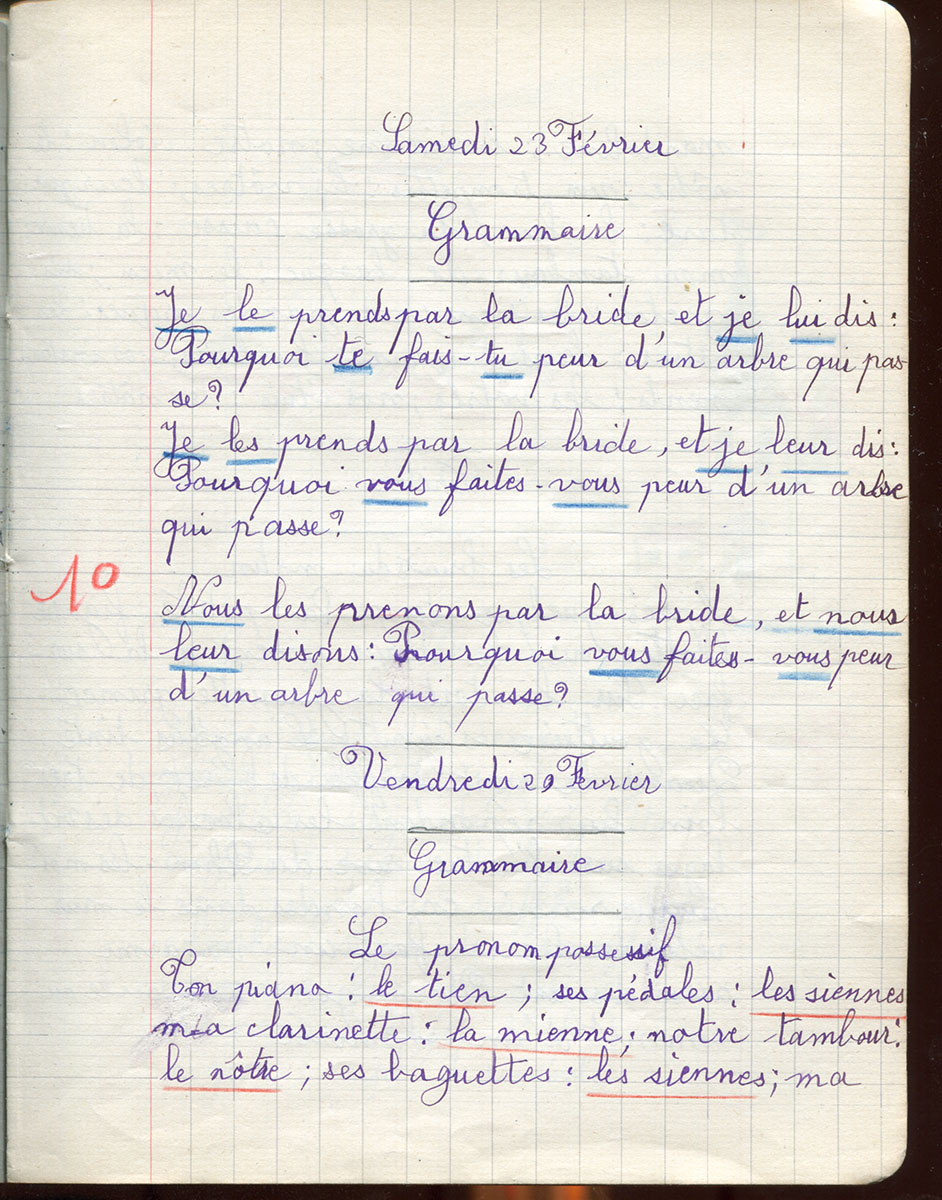 Samedi 23 Février
Grammaire
Je le prends par la bride, et je lui dis :
Pourquoi te fais-tu peur d'un arbre qui pas-
se?
Je les prends par la bride, et je leur dis:
Pourquoi vous faites-vous peur d'un arbre
qui passe?
10
Nous les prenons par la bride, et nous
leur disons: Pourquoi vous faites-vous peur
d'un arbre qui passe?
Vendredi 29 Février
Grammaire
Le pronom possessif
Ton piano : le tien ; ses pédales : les siennes
ma clarinette : la mienne ; notre tambour:
le nôtre ; ses baguettes : les siennes ; ma